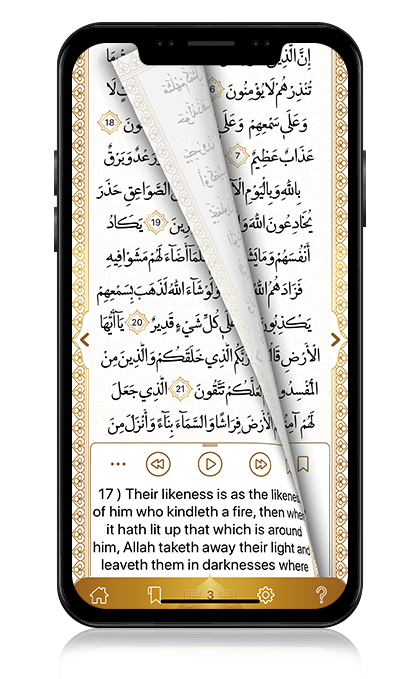 إِنَّ الَّذِينَ
تُنْذِرْهُمْ لَا يُؤْمِنُونَ 6 لَا
وَعَلَىٰ سَمْعِهِمْ وَعَلَىٰ ونَ 18
عَذَابٌ عَظِيمٌ 7 رَعْدٌ وَبَرْقٌ
بِاللَّهِ وَبِالْيَوْمِ الصَّوَاعِقِ حَذَرَ
يُخَادِعُونَ اللَّهَ رِينَ 19 يَكَادُ
أَنْفُسَهُمْ وَمَا لَّمَا أَضَاءَ لَهُمْ مَشَوْا فِيهِ
فَزَادَهُمُ اللَّهُ وَلَوْ شَاءَ اللَّهُ لَذَهَبَ بِسَمْعِهِمْ
يَكْذِبُونَ عَلَىٰ كُلِّ شَيْءٍ قَدِيرٌ 20 يَا أَيُّهَا
الْأَرْضِ رَبَّكُمُ الَّذِي خَلَقَكُمْ وَالَّذِينَ مِنْ
الْمُفْسِدُو لَعَلَّكُمْ تَتَّقُونَ 21 الَّذِي جَعَلَ
لَهُمْ الْأَرْضَ فِرَاشًا وَالسَّمَاءَ بِنَاءً وَأَنْزَلَ مِنَ
17 ) Their likeness is as the likeness
of him who kindleth a fire, then when
it hath lit up that which is around
him, Allah taketh away their light and
leaveth them in darknesses where
3